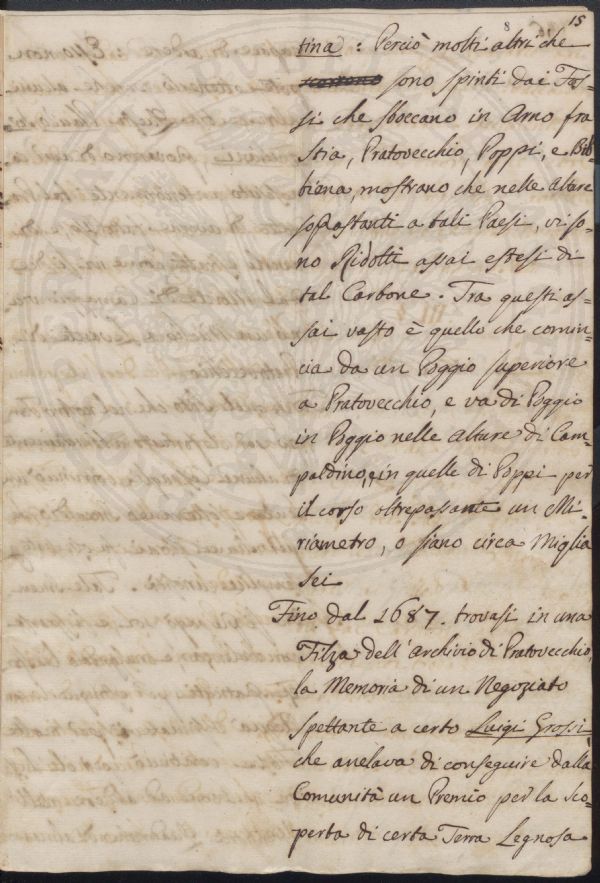 8 15
tina : Perciò molti altri che
sono spinti dai Fos=
si che sboccano in Arno fra
Stia, Pratovecchio, Poppi, e Bib=
biena, mostrano che nelle alture
soprastanti a tali Paesi, vi so=
no Ridotti assai estesi di
tal Carbone. Tra questi as=
sai vasto è quello che comin=
cia da un Poggio superiore
a Pratovecchio, e va di Poggio
in Poggio nelle alture di Cam=
paldino, e in quelle di Poppi per
il corso oltrepassante un Mi=
riametro, o siano circa Miglia
Sei
Fino dal 1687. trovasi in una
Filza dell'archivio di Pratovecchio,
la Memoria di un Negoziato
spettante a certo Luigi Grossi,
che anelava di conseguire dalla
Comunità un Premio per la sco=
perta di certa Terra Legnosa